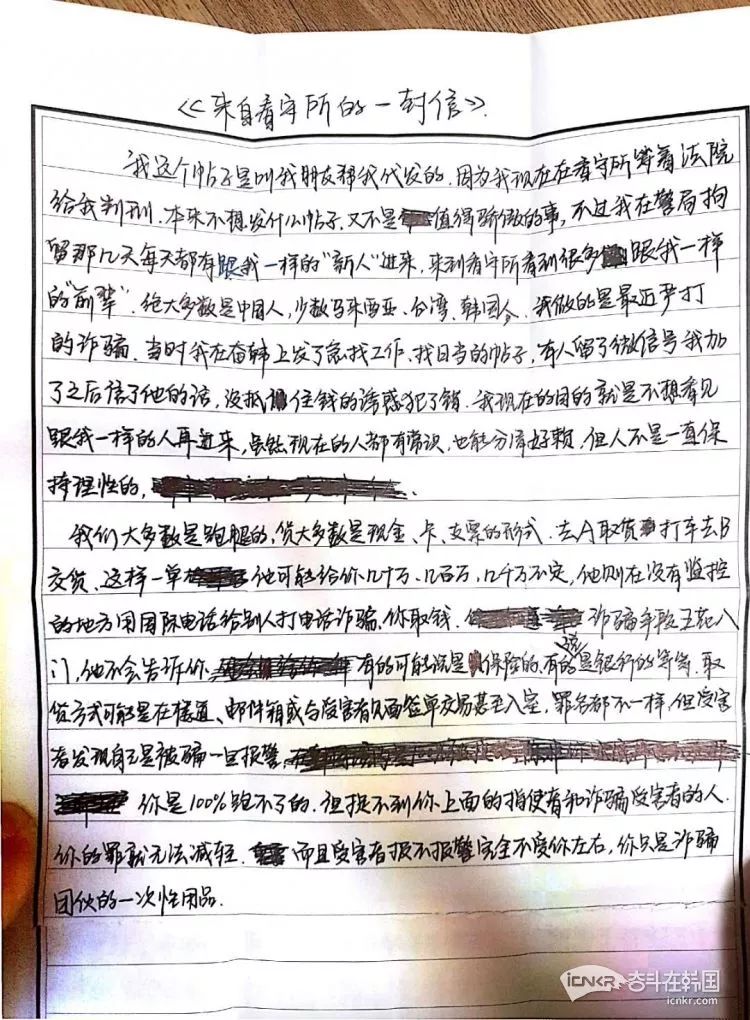 《来自看守所的一封信》
我这个帖子是叫我朋友帮我代发的.因为我现在在看守所等着法院
给我判刑.本来不想发什么帖子.又不是值得骄傲的事,不过我在警局拘
留那几天每天都有跟我一样的"新人"进来,来到看守所看到很多跟我一样
的"前辈".绝大多数是中国人,少数马来西亚、台湾、韩国人.我做的是最近严打
的诈骗.当时我在奋韩上发了急找工作、找日当的帖子,有人留了微信号我加
了之后信了他的话,没抵住钱的诱惑犯了错.我现在的目的就是不想看见
跟我一样的人再进来,虽然现在的人都有常识,也能分清好赖.但人不是一直保
持理性的,
我们大多数是跑腿的,货大多数是现金、卡、支票的形式.去A取货打车去B
交货.这样一单他可能给你几十万、几百万,几千万不定,他则在没有监控
的地方用国际电话给别人打电话诈骗,你取钱.诈骗手段五花八
门,他不会告诉你,有的可能说是保险的.有的是银行的等等.取
货方式可能是在楼道、邮件箱或与受害者见面签单交易甚至入室,罪名都不一样,但受害
者发现自己是被骗一旦报警,
你是100%跑不了的.但捉不到你上面的指使者和诈骗受害者的人.
你的罪就无法减轻.而且受害者报不报警完全不受你左右,你只是诈骗
团伙的一次性用品.
iCNKR 奋斗在韩国
icnkr.com